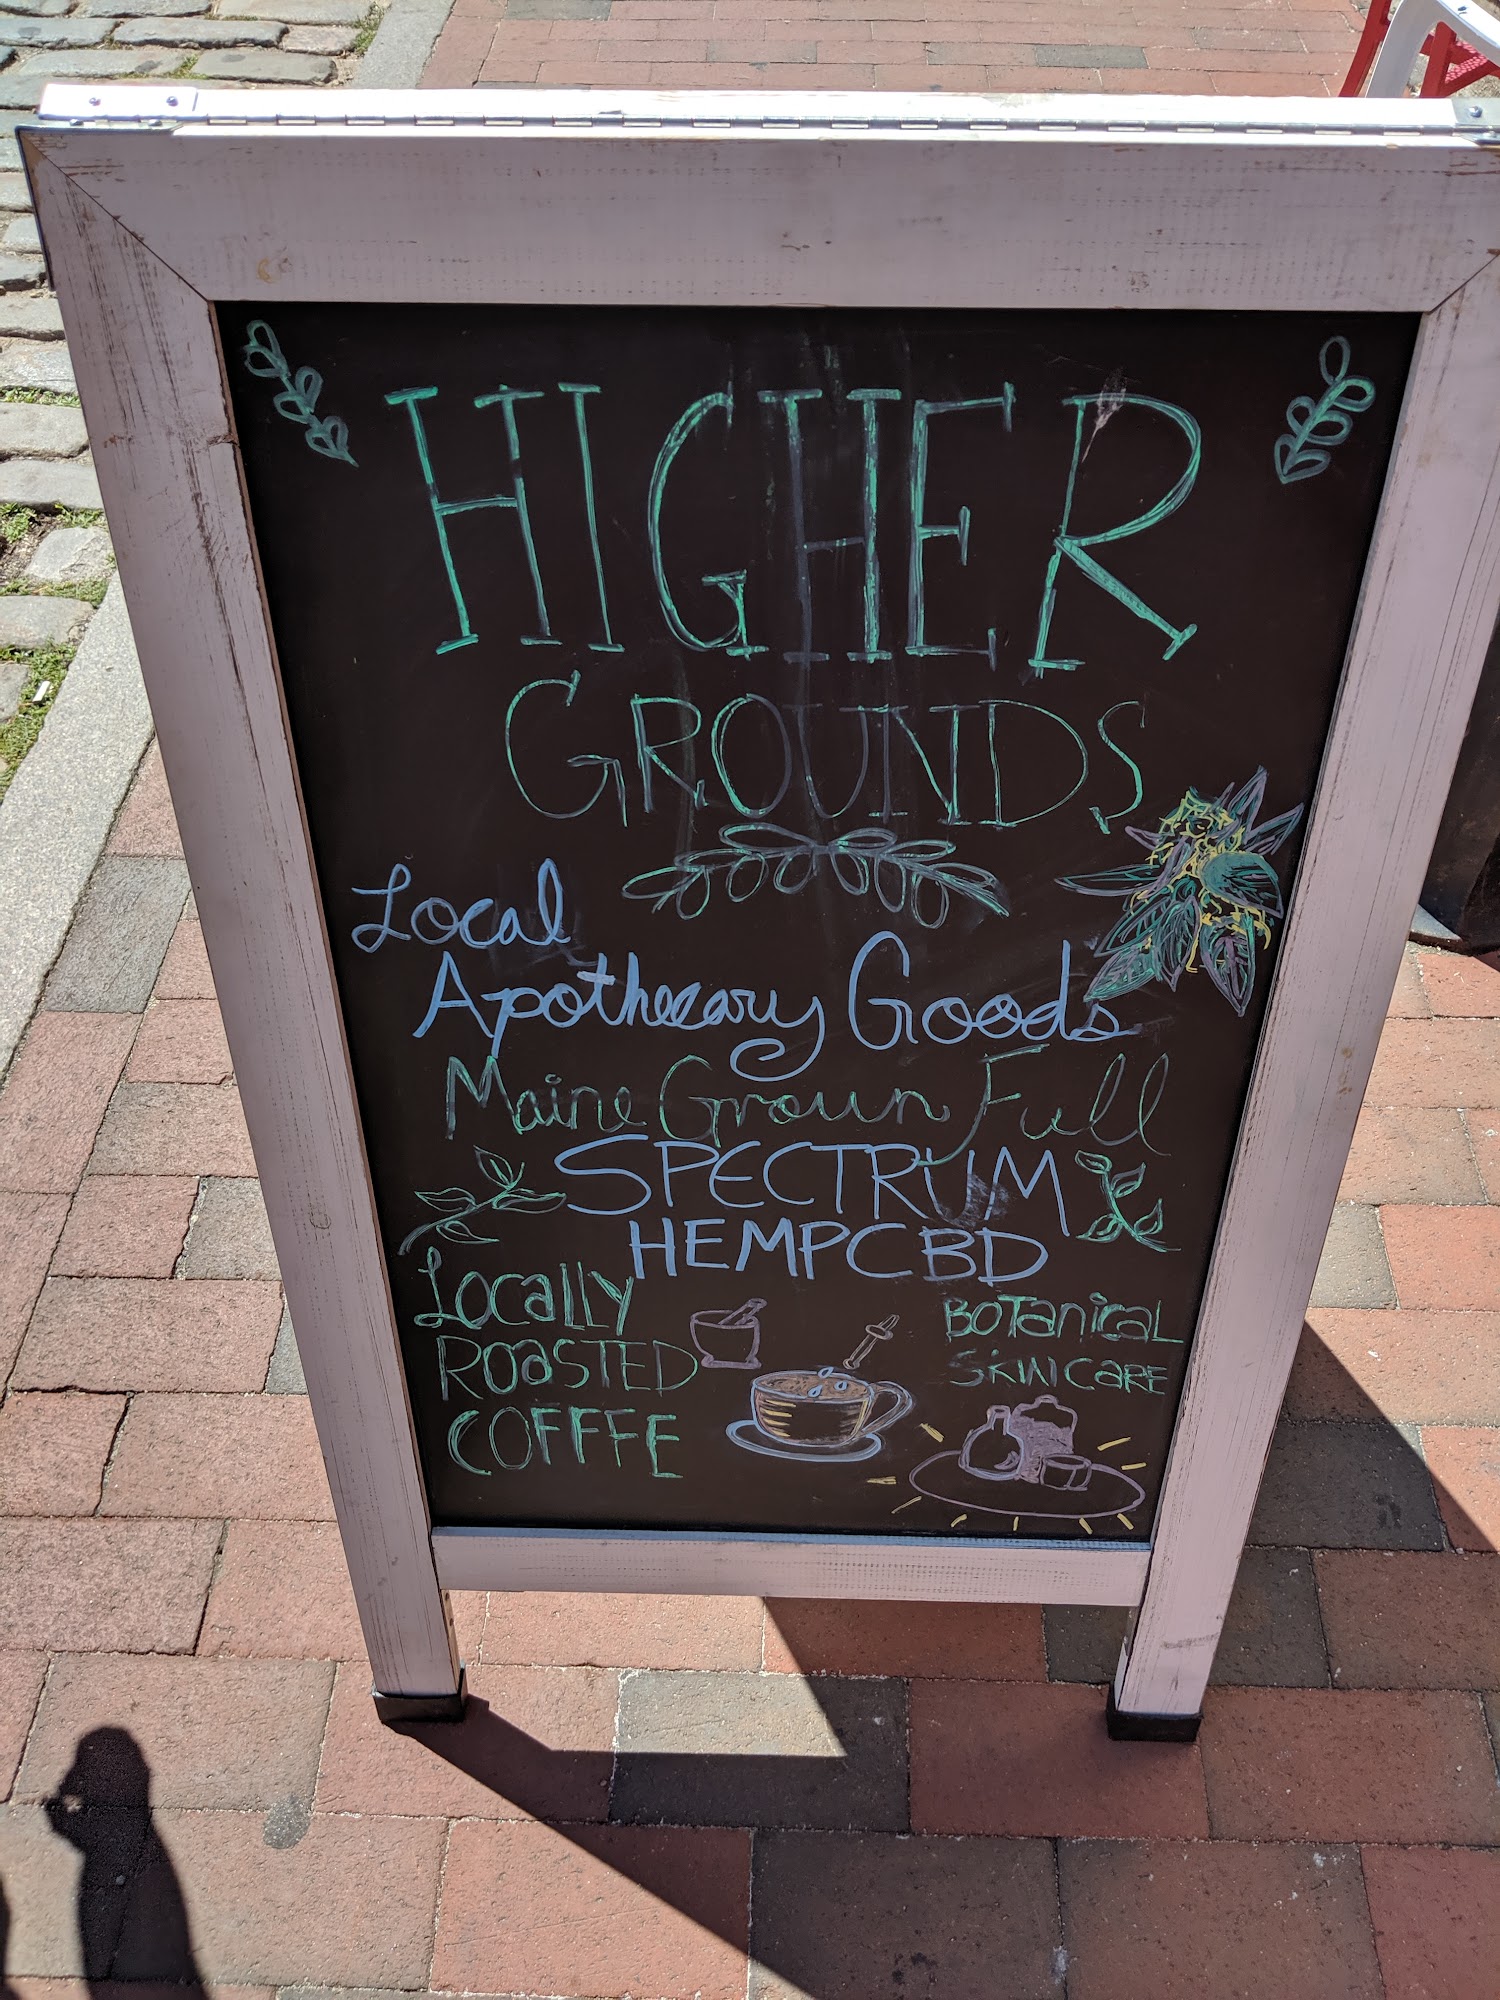 HIGHER
GROUNDS
Local
Apothecary Goods
Maine Grown Full
SPECTRUM
HEMPCBD
Locally
ROaSTED
COFFFE
BOTanicaL
SKINCARE